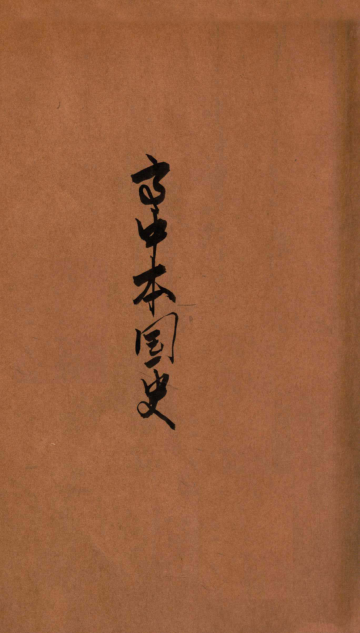 高中本国史